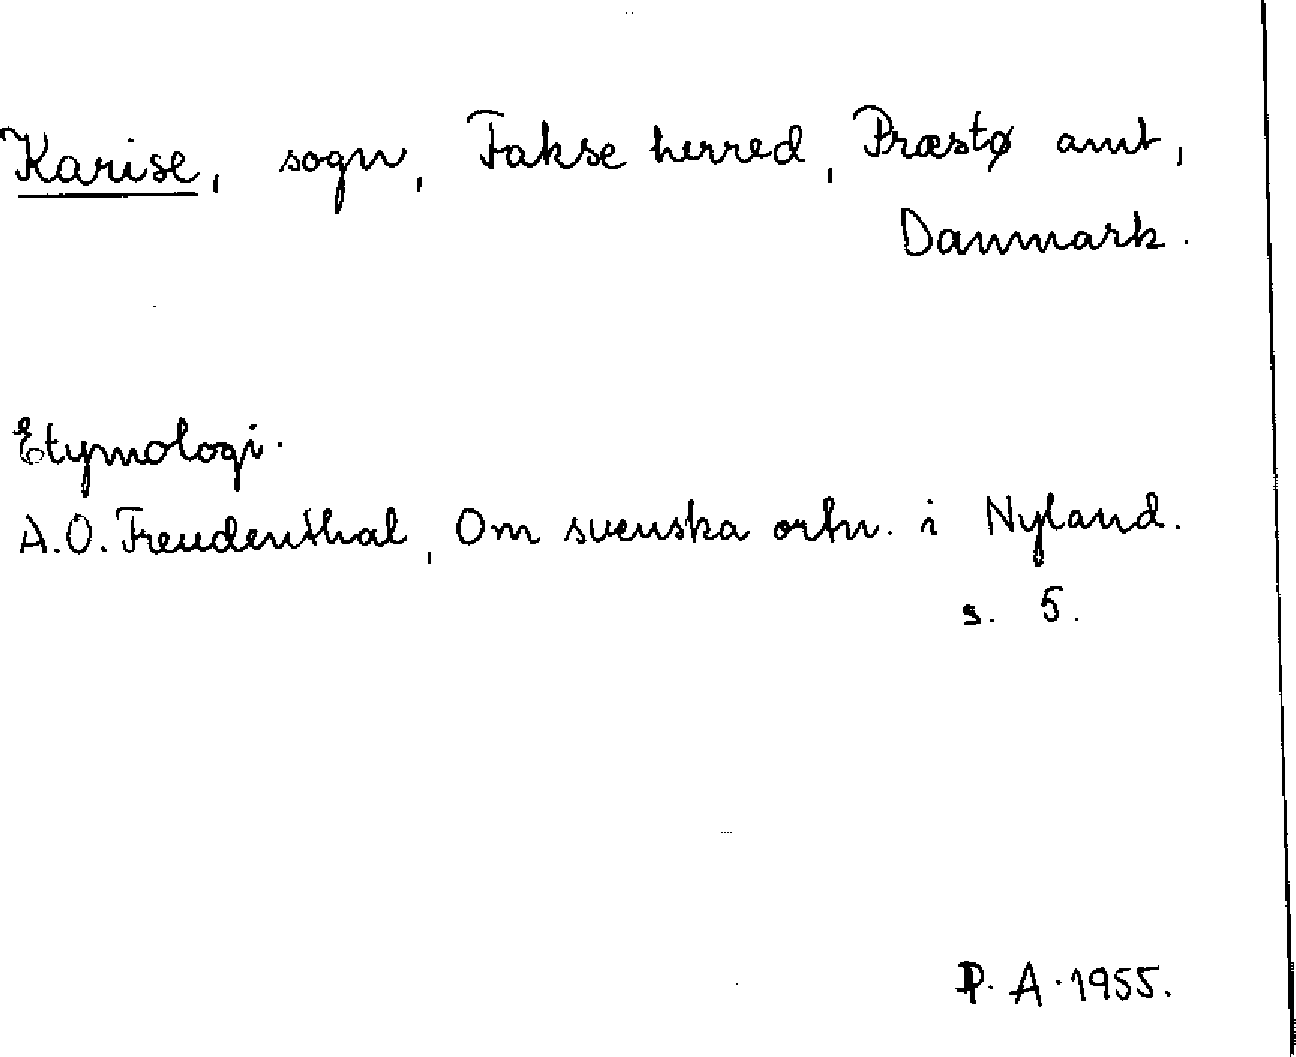 Karise, sogn, Fakse herred, Præstø amt,
Danmark.
Etymologi.
A.O. Freudenthal, Om svenska ortn. i Nyland.
s. 5.
P. A. 1955.